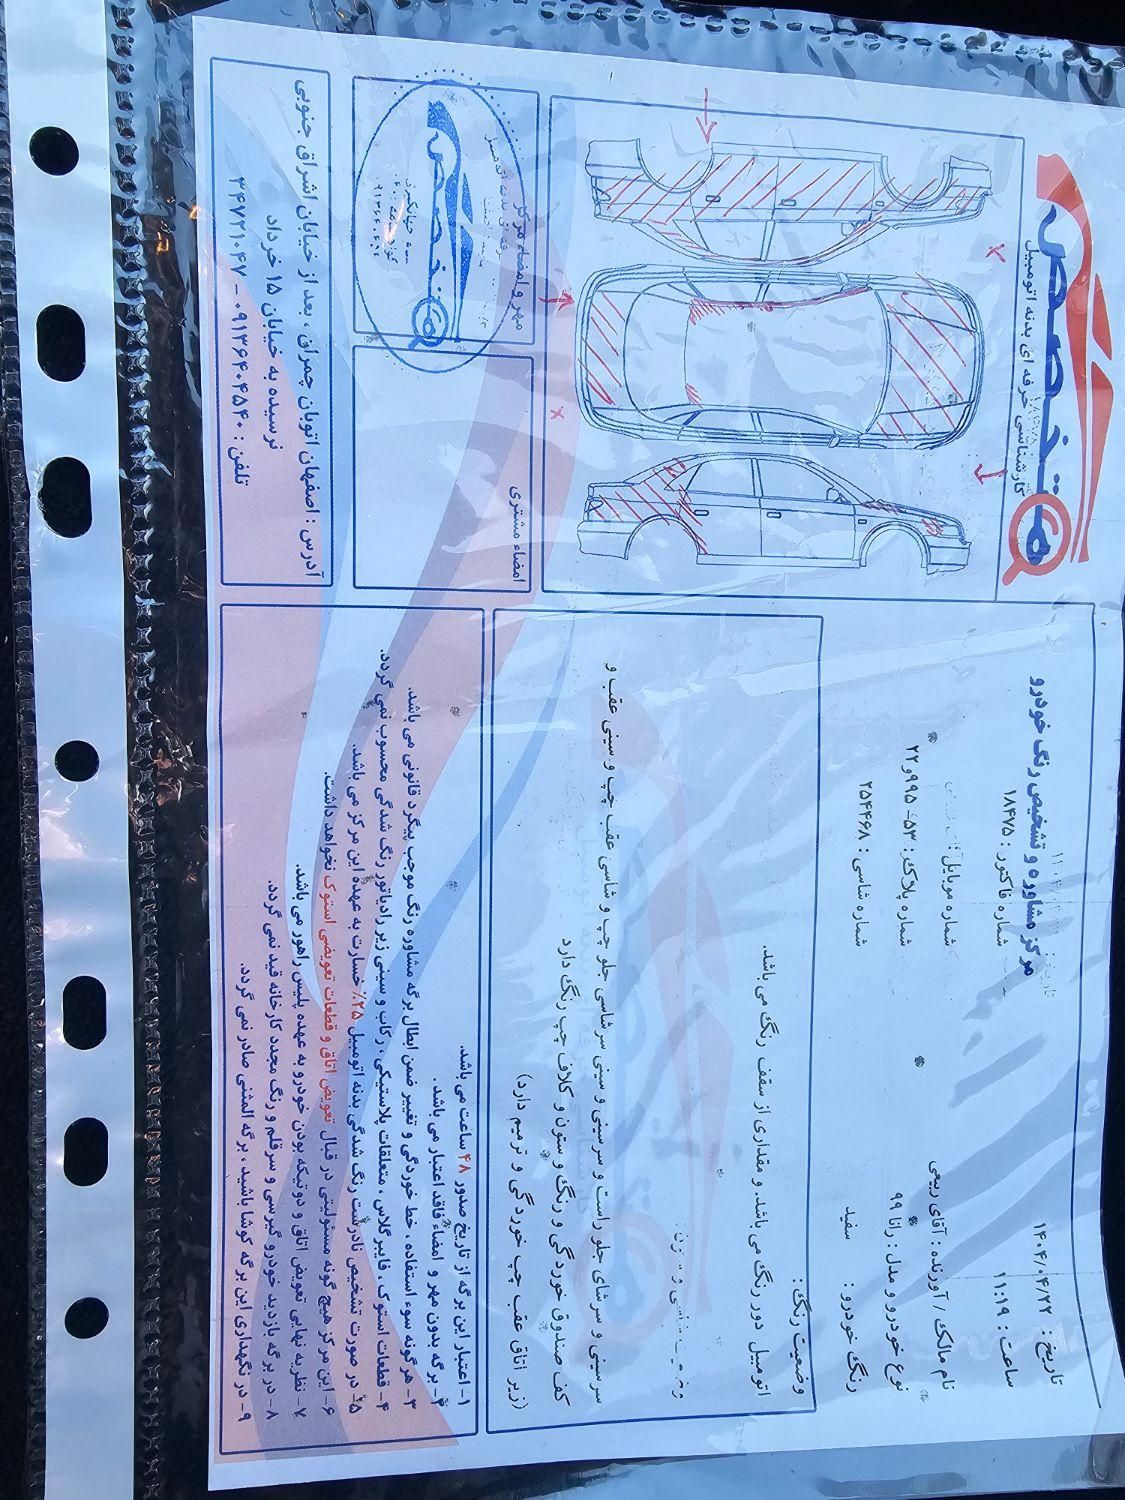 تشخیص
کارشناسی حرفه ای بدنه اتومبیل
مرکز مشاوره و تشخیص رنگ خودرو
تاریخ : ۱۴۰۴/۰۴/۲۲
شماره فاکتور : ۱۸۴۷۵
ساعت : ۱۱:۱۹
نام مالک / آورنده : آقای ربیعی
شماره موبایل
نوع خودرو و مدل : رانا ۹۹
شماره پلاک : ۵۳- ۹۹۵و۲۲
رنگ خودرو : سفید
شماره شاسی : ۲۵۴۴۶۸
وضعیت رنگ:
اتومبیل دور رنگ می باشد. و مقداری از سقف رنگ می باشد.
سر سینی و سرشاسی جلو راست و سرسینی و سینی سرشاسی جلو چپ و شاسی عقب چپ و سینی عقب و
کف صندوق خوردگی و رنگ و ستون و کلاف چپ رنگ دارد
(زیر اتاق عقب چپ خوردگی و ترمیم دارد)
مهر و امضاء مرکز
امضاء مشتری
۱- اعتبار این برگه از تاریخ صدور ۴۸ ساعت می باشد.
۲- برگه بدون مهر و امضاء فاقد اعتبار می باشد .
۳- هرگونه سوء استفاده ، خط خوردگی و تغییر ضمن ابطال برگه مشاوره رنگ موجب پیگرد قانونی می باشد.
۴- قطعات استوک ، فایبرگلاس ، متعلقات پلاستیکی ، رکاب و سینی زیر رادیاتور رنگ شدگی محسوب نمی گردد.
۵- در صورت تشخیص نادرست رنگ شدگی بدنه اتومبیل ۲۵٪ خسارت به عهده این مرکز می باشد.
۶- این مرکز هیچ گونه مسئولیتی در قبال تعویض اتاق و قطعات تعویضی استوک نخواهد داشت.
۷- نظریه نهایی تعویض اتاق و دوتیکه بودن خودرو به عهده پلیس راهور می باشد.
۸- در برگه بازدید خودرو گیرسی و سرقلم و رنگ مجدد کارخانه قید نمی گردد.
۹- در نگهداری این برگه کوشا باشید ، برگه المثنی صادر نمی گردد.
آدرس : اصفهان اتوبان چمران ، بعد از خیابان اشراق جنوبی
نرسیده به خیابان ۱۵ خرداد
تلفن : ۰۹۱۳۶۴۰۴۵۴۰ - ۳۴۷۲۱۰۴۷